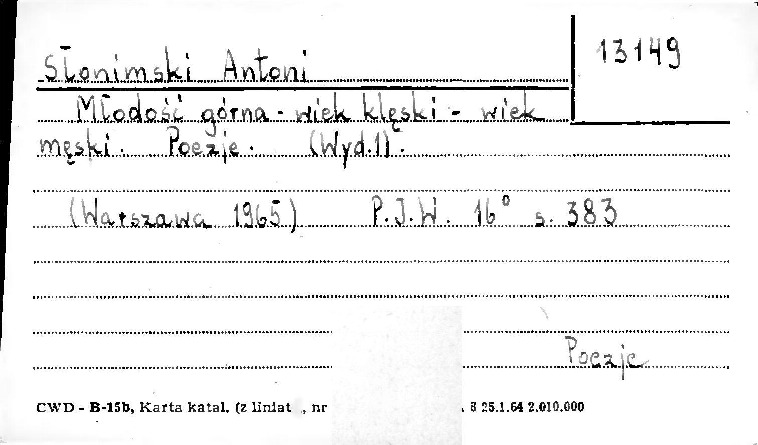 13149
Słonimski Antoni
Młodość górna - wiek klęski - wiek
męski. Poezje. (Wyd.1).
(Warszawa 1965) P.J.W. 16° s. 383
Poezje
CWD - B-15b, Karta katal. (z liniat , nr 8 25.1.64 2.010.000